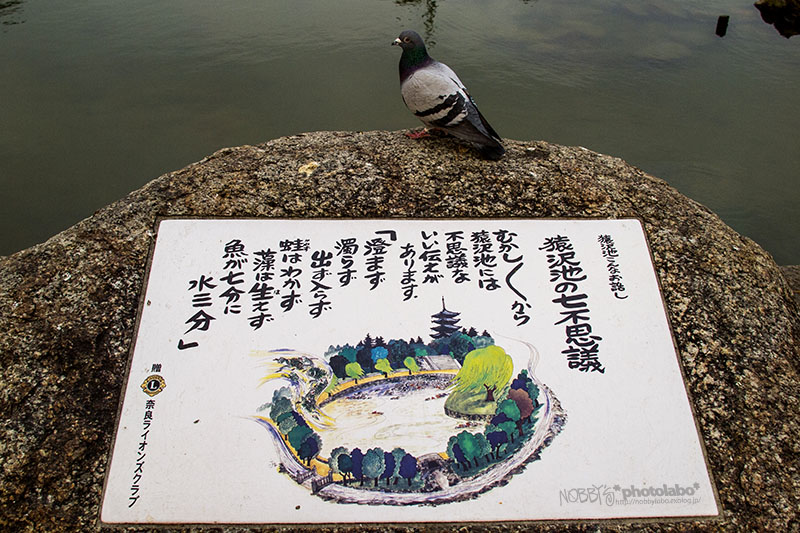 猿沢池こんなお話し
猿沢池の七不思議
むかし〱から
猿沢池には
不思議な
いい伝えが
あります。
「澄まず
濁らず
出ず入らず
蛙はわかず
藻は生えず
魚が七分に
水三分」
贈
L
奈良ライオンズクラブ
NOBBY's *photolabo*
http://nobbylabo.exblog.jp/